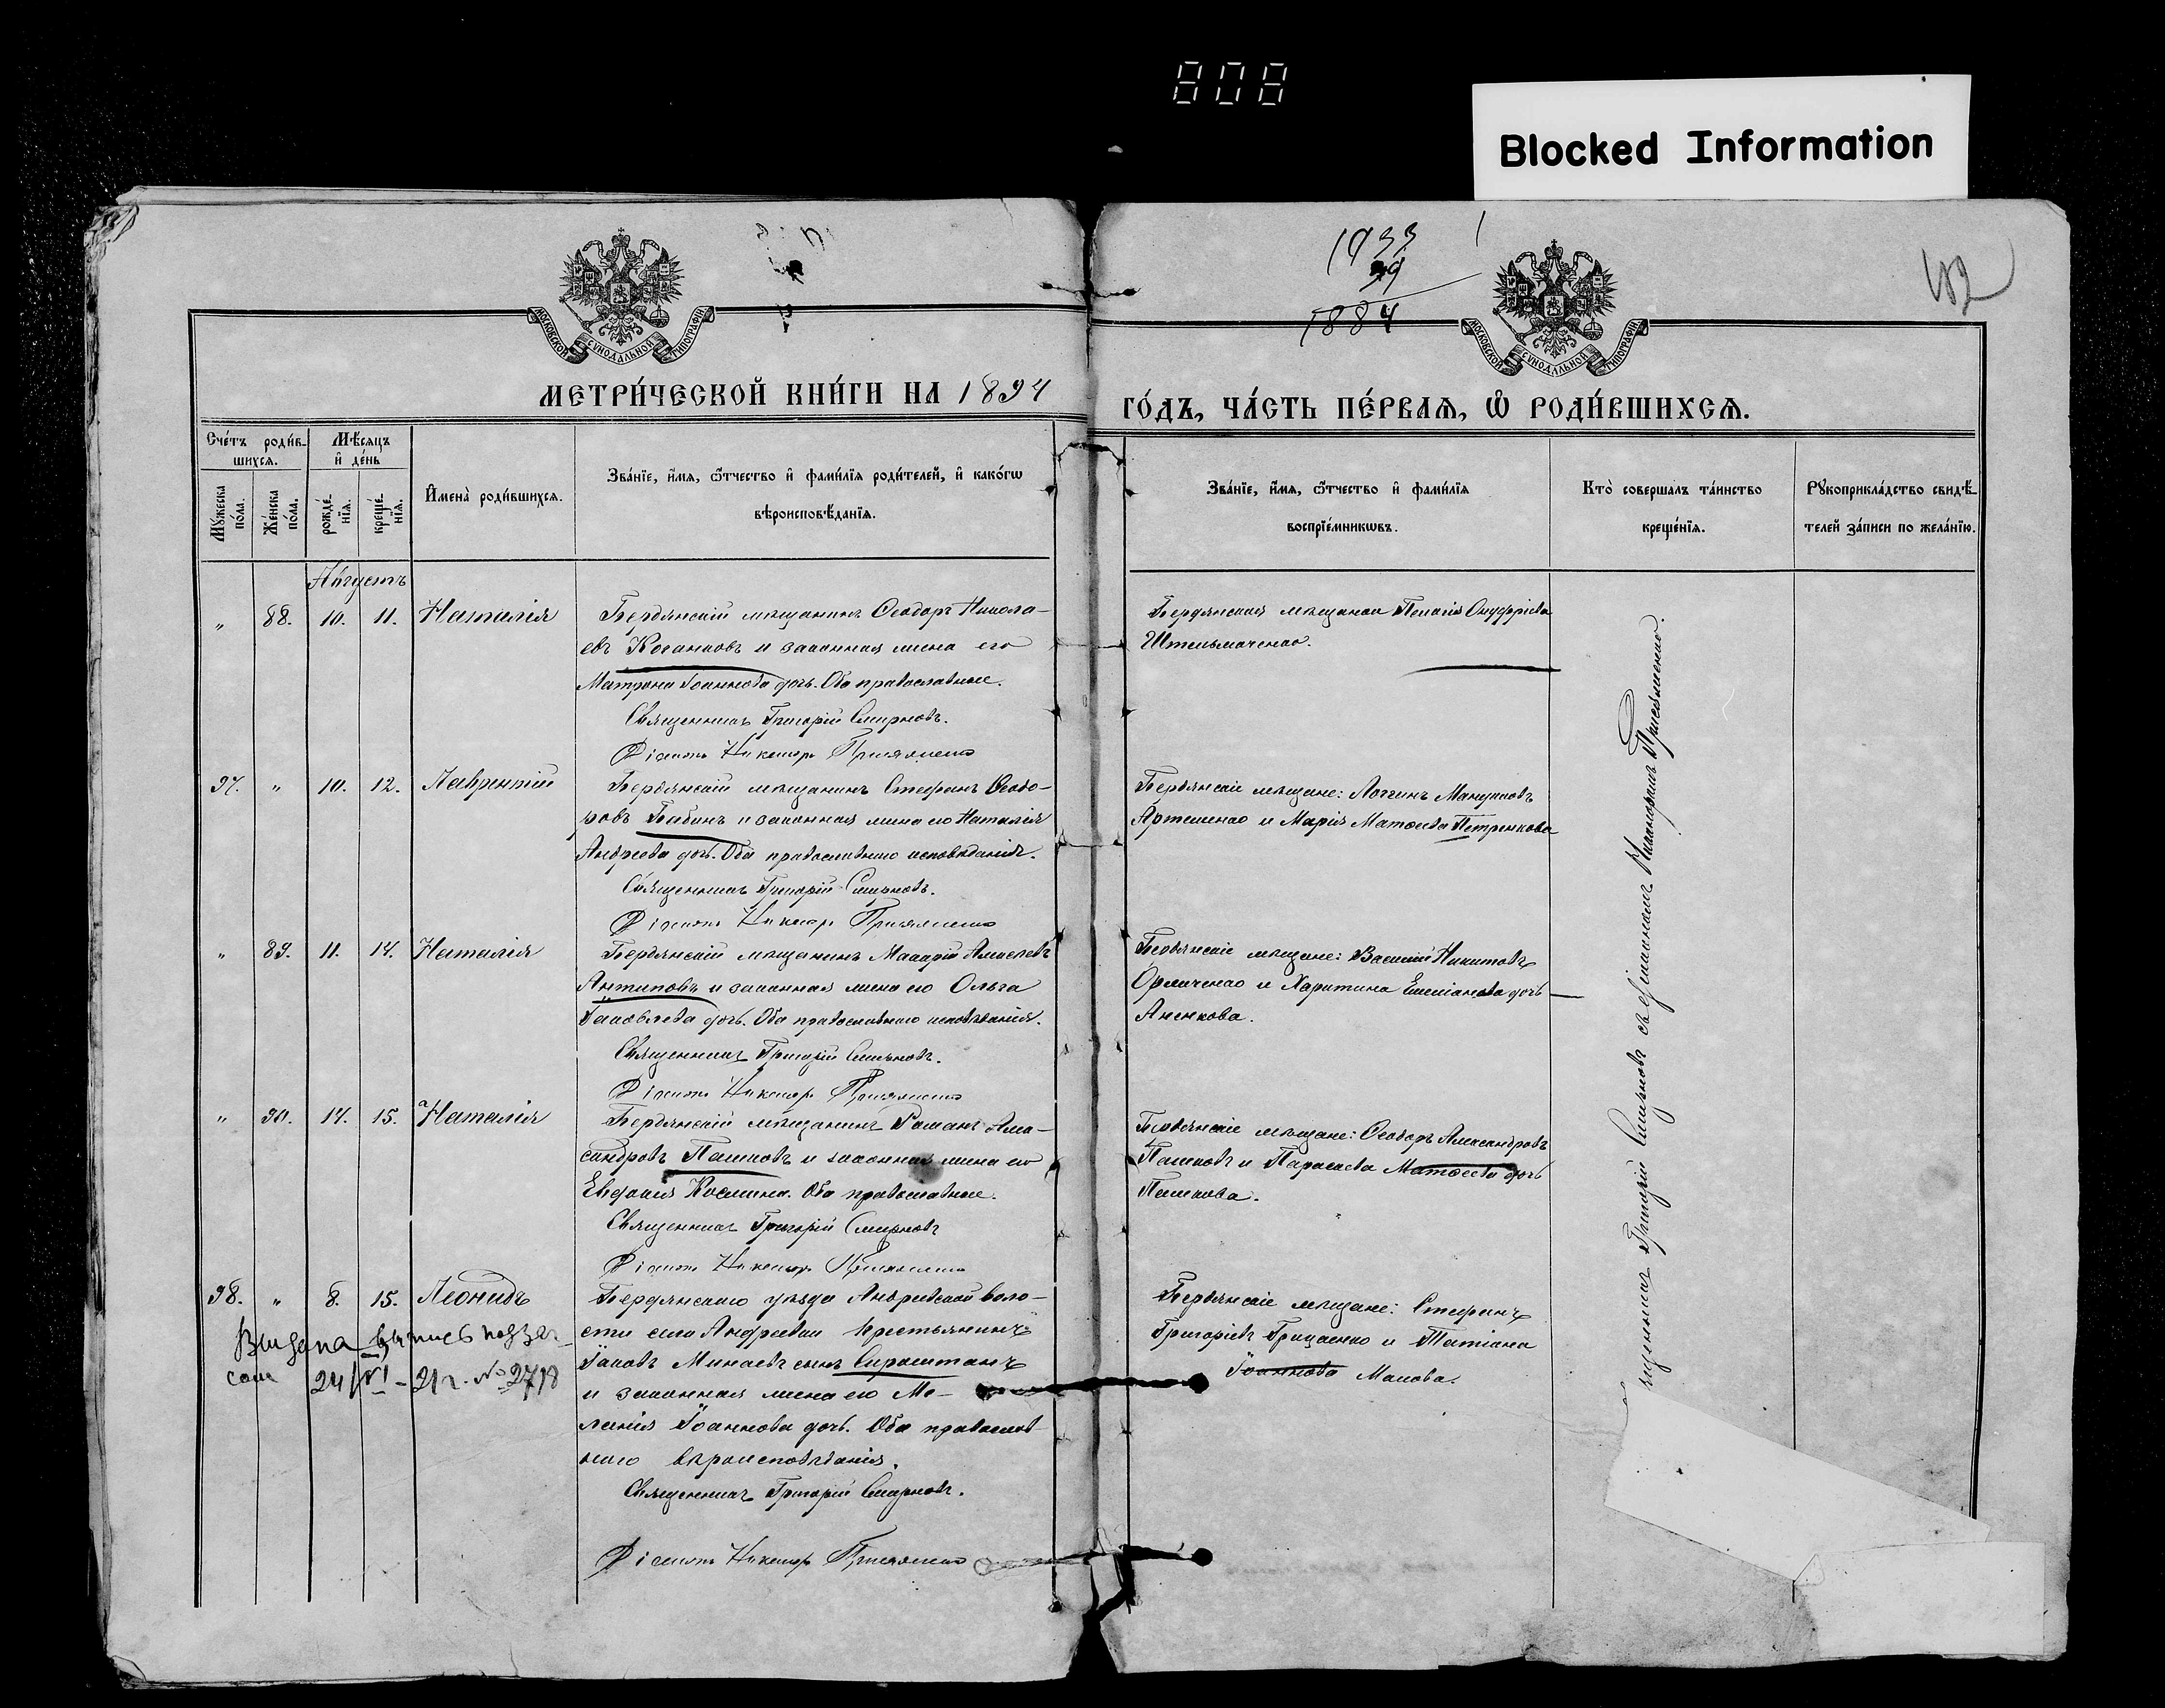 808
Blocked Information
1933
1884
МОСКОВСКОЙ СѴНОДАЛЬНОЙ ТИПОГРАФІИ
МОСКОВСКОЙ СѴНОДАЛЬНОЙ ТИПОГРАФІИ
МЕТРИ́ЧЕСКОЙ КНИ́ГИ НА 1894
ГО́ДЪ, ЧА́СТЬ ПЕ́РВАѦ, Ѡ РОДИ́ВШИХСѦ.
Сче́тъ роди́в-
шихсѧ.
Мѣ́сяцъ
и҆ де́нь
Му́жеска по́ла.
Же́нска по́ла.
рожде́нїѧ.
креще́нїѧ.
И҆мена̀ роди́вшихсѧ.
Зва́нїе, и҆́мѧ, ѻ҆́тчество и҆ фами́лїѧ роди́телей, и҆ како́гѡ
вѣроисповѣ́данїѧ.
Зва́нїе, и҆́мѧ, ѻ҆́тчество и҆ фами́лїѧ
воспрїе́мникѡвъ.
Кто̀ соверша́лъ та́инство
креще́нїѧ.
Рꙋкоприкла́дство свидѣ́-
телей за́писи по жела́нїю.
Августъ
" 88. 10. 11. Наталія
Бердянскій мѣщанинъ Ѳеодоръ Никола-
евъ Косанковъ и законная жена его
Матрона Іоаннова дочь. Оба православные.
Священникъ Григорій Смирновъ.
Діаконъ Никаноръ Присяженко
Бердянская мѣщанка Пелагія Онуфріева
Штельмаченко.
97. " 10. 12. Лаврентій
Бердянскій мѣщанинъ Стефанъ Ѳеодо-
ровъ Бабинъ и законная жена его Наталія
Андреева дочь. Оба православнаго исповѣданія.
Священникъ Григорій Смирновъ.
Діаконъ Никаноръ Присяженко
Бердянскіе мѣщане: Логгинъ
Артеменко и Марія Матѳеева Петренкова
" 89. 11. 14. Наталія
Бердянскій мѣщанинъ Макарій Алексѣевъ
Антиповъ и законная жена его Ольга
Іаковлева дочь. Оба православнаго исповѣданія.
Священникъ Григорій Смирновъ.
Діаконъ Никаноръ Присяженко
Бердянскіе мѣщане: Василій Никитовъ
и Харитина Емеліанова дочь
Аненкова.
" 90. 14. 15. Наталія
Бердянскій мѣщанинъ Романъ Алек-
сандровъ Пашковъ и законная жена его
Евдокія Косьмина. Оба православные.
Священникъ Григорій Смирновъ
Діаконъ Никаноръ Присяженко
Бердянскіе мѣщане: Ѳеодоръ Александровъ
Пашковъ и Параскева Матѳеева дочь
Пашкова.
98. " 8. 15. Леонидъ
Бердянскаго уѣзда Андреевской воло-
сти села Андреевки крестьянинъ
Іаковъ Минаевъ сынъ Сироштанъ
и законная жена его Ме-
ланія Іоаннова дочь. Оба православ-
наго вѣроисповѣданія.
Священникъ Григорій Смирновъ.
Діаконъ Никаноръ Присяженко
Бердянскіе мѣщане: Стефанъ
Григоріевъ Гриценко и Татіана
Іоаннова Макова.
Выдана выпись
24/VI - 21 г. № 2718
Священникъ Григорій Смирновъ съ діакономъ Никаноромъ Присяженко.